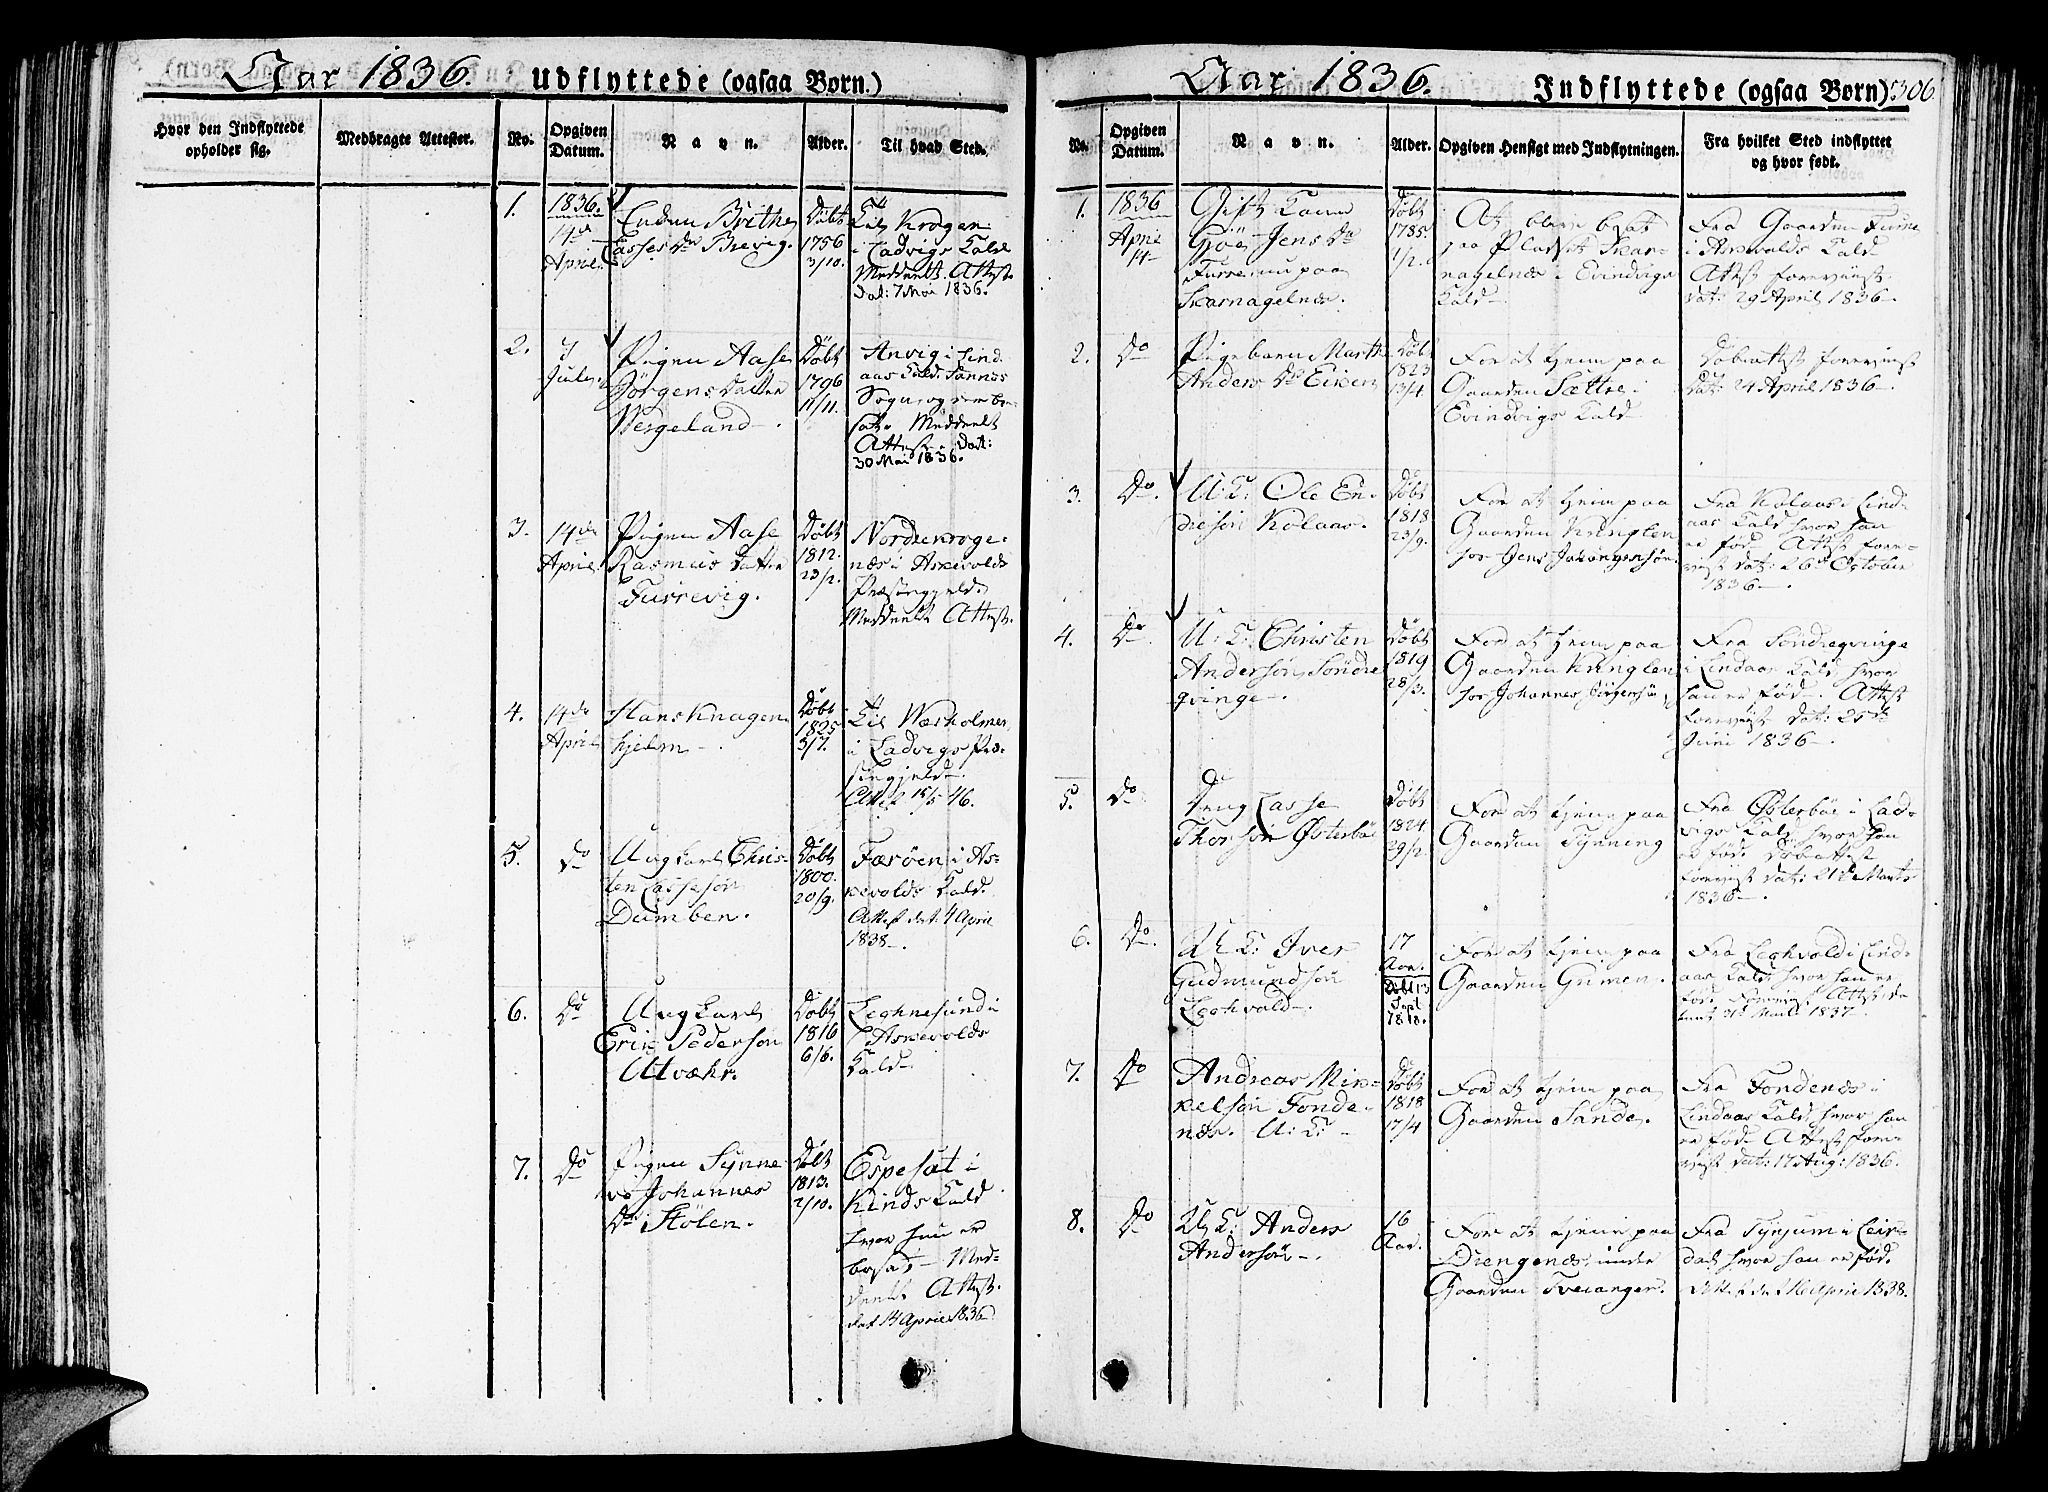 Aar 1836. Udflyttede (ogsaa Børn.)
Hvor den Indflyttede
opholder sig.
Medbragte Attester.
No.
Opgiven
Datum.
Navn.
Alder.
Til hvad Sted.
1.
1836.
14de
April
Enken Brithe
Lasses Dr Brevig.
Døbt
1756
3/10.
Til Krogen
i Ladvigs Kald
Meddeelt Attest
dat: 7 Mai 1836.
2.
7
July
Pigen Aase
Jörgens Datter
Wergeland
Døbt
1796
11/11.
Anvig i Lind-
aas Kald. Sannæs
Sogn, og
Meddeelt
Attest Dat:
30 Mai 1836.
3.
14de
April
Pigen Aase
Rasmus Datter
Furrevig.
Døbt
1812.
23/2.
Nordrekroge-
næs i Askevolds
Præstegjeld.
Meddeelt Attest.
4.
14de
April
Hans Knagen-
hjelm
Døbt
1825
3/7.
Til Wærholmen
i Ladvigs Præ-
stegjeld
Attest 15/5 46.
5.
Do
Ungkarl Chris-
ten Lassesön
Dumben.
Døbt
1800.
20/9.
Færöen i As-
kevolds Kald.
Attest dat. 4 April
1838.
6.
Do
Ungkarl
Eric Pedersön
Utvæhr.
Døbt
1816
6/6.
Leghnesund i
Askevolds
Kald
7.
Do
Pigen Synne-
ve Johannes
Dr Stölen.
Døbt
1813.
2/10.
Espeset i
Kinds Kald
hvor hun er
bosat, Med-
deelt Attest.
dat 14 April 1836
Aar 1836. Indflyttede (ogsaa Børn) 306.
No.
Opgiven
Datum.
Navn.
Alder.
Opgiven Hensigt med Indflytningen.
Fra hvilket Sted indflyttet
og hvor født.
1.
1836
April
14
Gift Kone
Jens Dr
Furre nu paa
Skarnagelnæs.
Døbt
1785.
1/2.
At blive bosat
paa Pladset Skar-
nagelnæs i Evindvigs
Kald
Fra Gaarden Furre
i Askevolds Kald
Attest foreviist
dat: 29 April 1836.
2.
Do
Pigebarn Marthe
Anders Dr Eiken
Døbt
1823
13/4.
For at tjene paa
Gaarden Sættre i
Evindvigs Kald
Døbeattest foreviist
Dat: 24 April 1836.
3.
Do.
U: K: Ole En-
dresön Kolaas.
Døbt
1818
23/9.
For at tjene paa
Gaarden Kringlen
hos Jens Johannessön.
Fra Kolaas i Lind-
aas Kald hvor han
er född. Attest fore-
viist dat: 26de October
1836.
4.
Do.
U: K: Christen
Andersön Sondre
qvinge.
Døbt
1819
28/3.
For at tjene paa
Gaarden Kringlen
hos Johannes Jörgensön
Fra Söndreqvinge
i Lindaas Kald, hvor
han er född. Attest
foreviist dat: 25de
Juni 1836.
5.
Do
Dreng Lasse
Thorsön Østerböe
Døbt
1824.
29/2.
For at tjene paa
Gaarden Tynning
Fra Østerböe i Lad-
vigs Kald, hvor han
er född. Døbeattest
foreviist dat: 21de Marts
1836.
6.
Do.
U: K: Iver
Gudmundsön
Leghvold.
17
Aar.
Døbt 13
Sept
1818.
For at tjene paa
Gaarden Grimen.
Fra Leghvold i Lind-
aas Kald hvor han er
född. Foreviist Attest da-
teret 31 1837.
7.
Do
Andreas Mik-
kelsön Fonde-
næs. U: K:
Døbt
1818
17/4
For at tjene paa
Gaarden Sande.
Fra Fondenæs i
Lindaas Kald, hvor han
er född. Attest fore-
viist dat: 17 Aug: 1836.
8.
Do
U: K: Anders
Andersön.
16
Aar.
For at tjene paa
Drengenæs, under
Gaarden Tveranger.
Fra Tynjum i Leir-
dal hvor han er född.
Attest dat 16 April 1838.